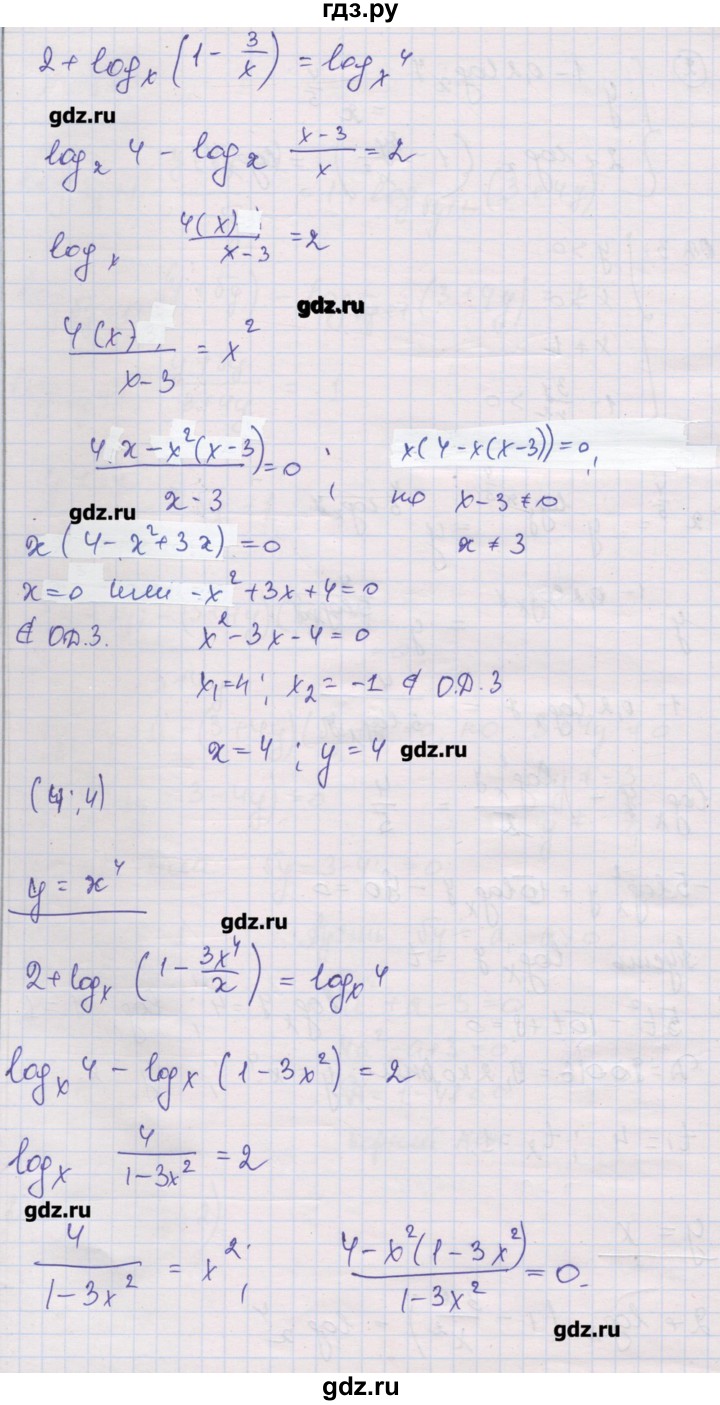 гдз.ру
2 + log_x (1 - 3/x) = log_x 4
gdz.ru
log_x 4 - log_x (x-3)/x = 2
log_x 4(x)/(x-3) = 2
gdz.ru
4(x)/(x-3) = x²
(4x - x²(x-3))/(x-3) = 0 ; x(4-x(x-3))=0,
gdz.ru
но x-3≠0
x(4-x²+3x) = 0 x≠3
x=0 или -x²+3x+4=0
∉ О.Д.З. x²-3x-4=0
x₁=4; x₂=-1 ∉ О.Д.З
x=4; y=4 gdz.ru
(4;4)
y = x⁴
gdz.ru
2+log_x (1 - 3x⁴/x) = log_x 4
log_x 4 - log_x (1-3x²) = 2
log_x 4/(1-3x²) = 2
gdz.ru
4/(1-3x²) = x²; (4-x²(1-3x²))/(1-3x²) = 0.
gdz.ru
gdz.ru